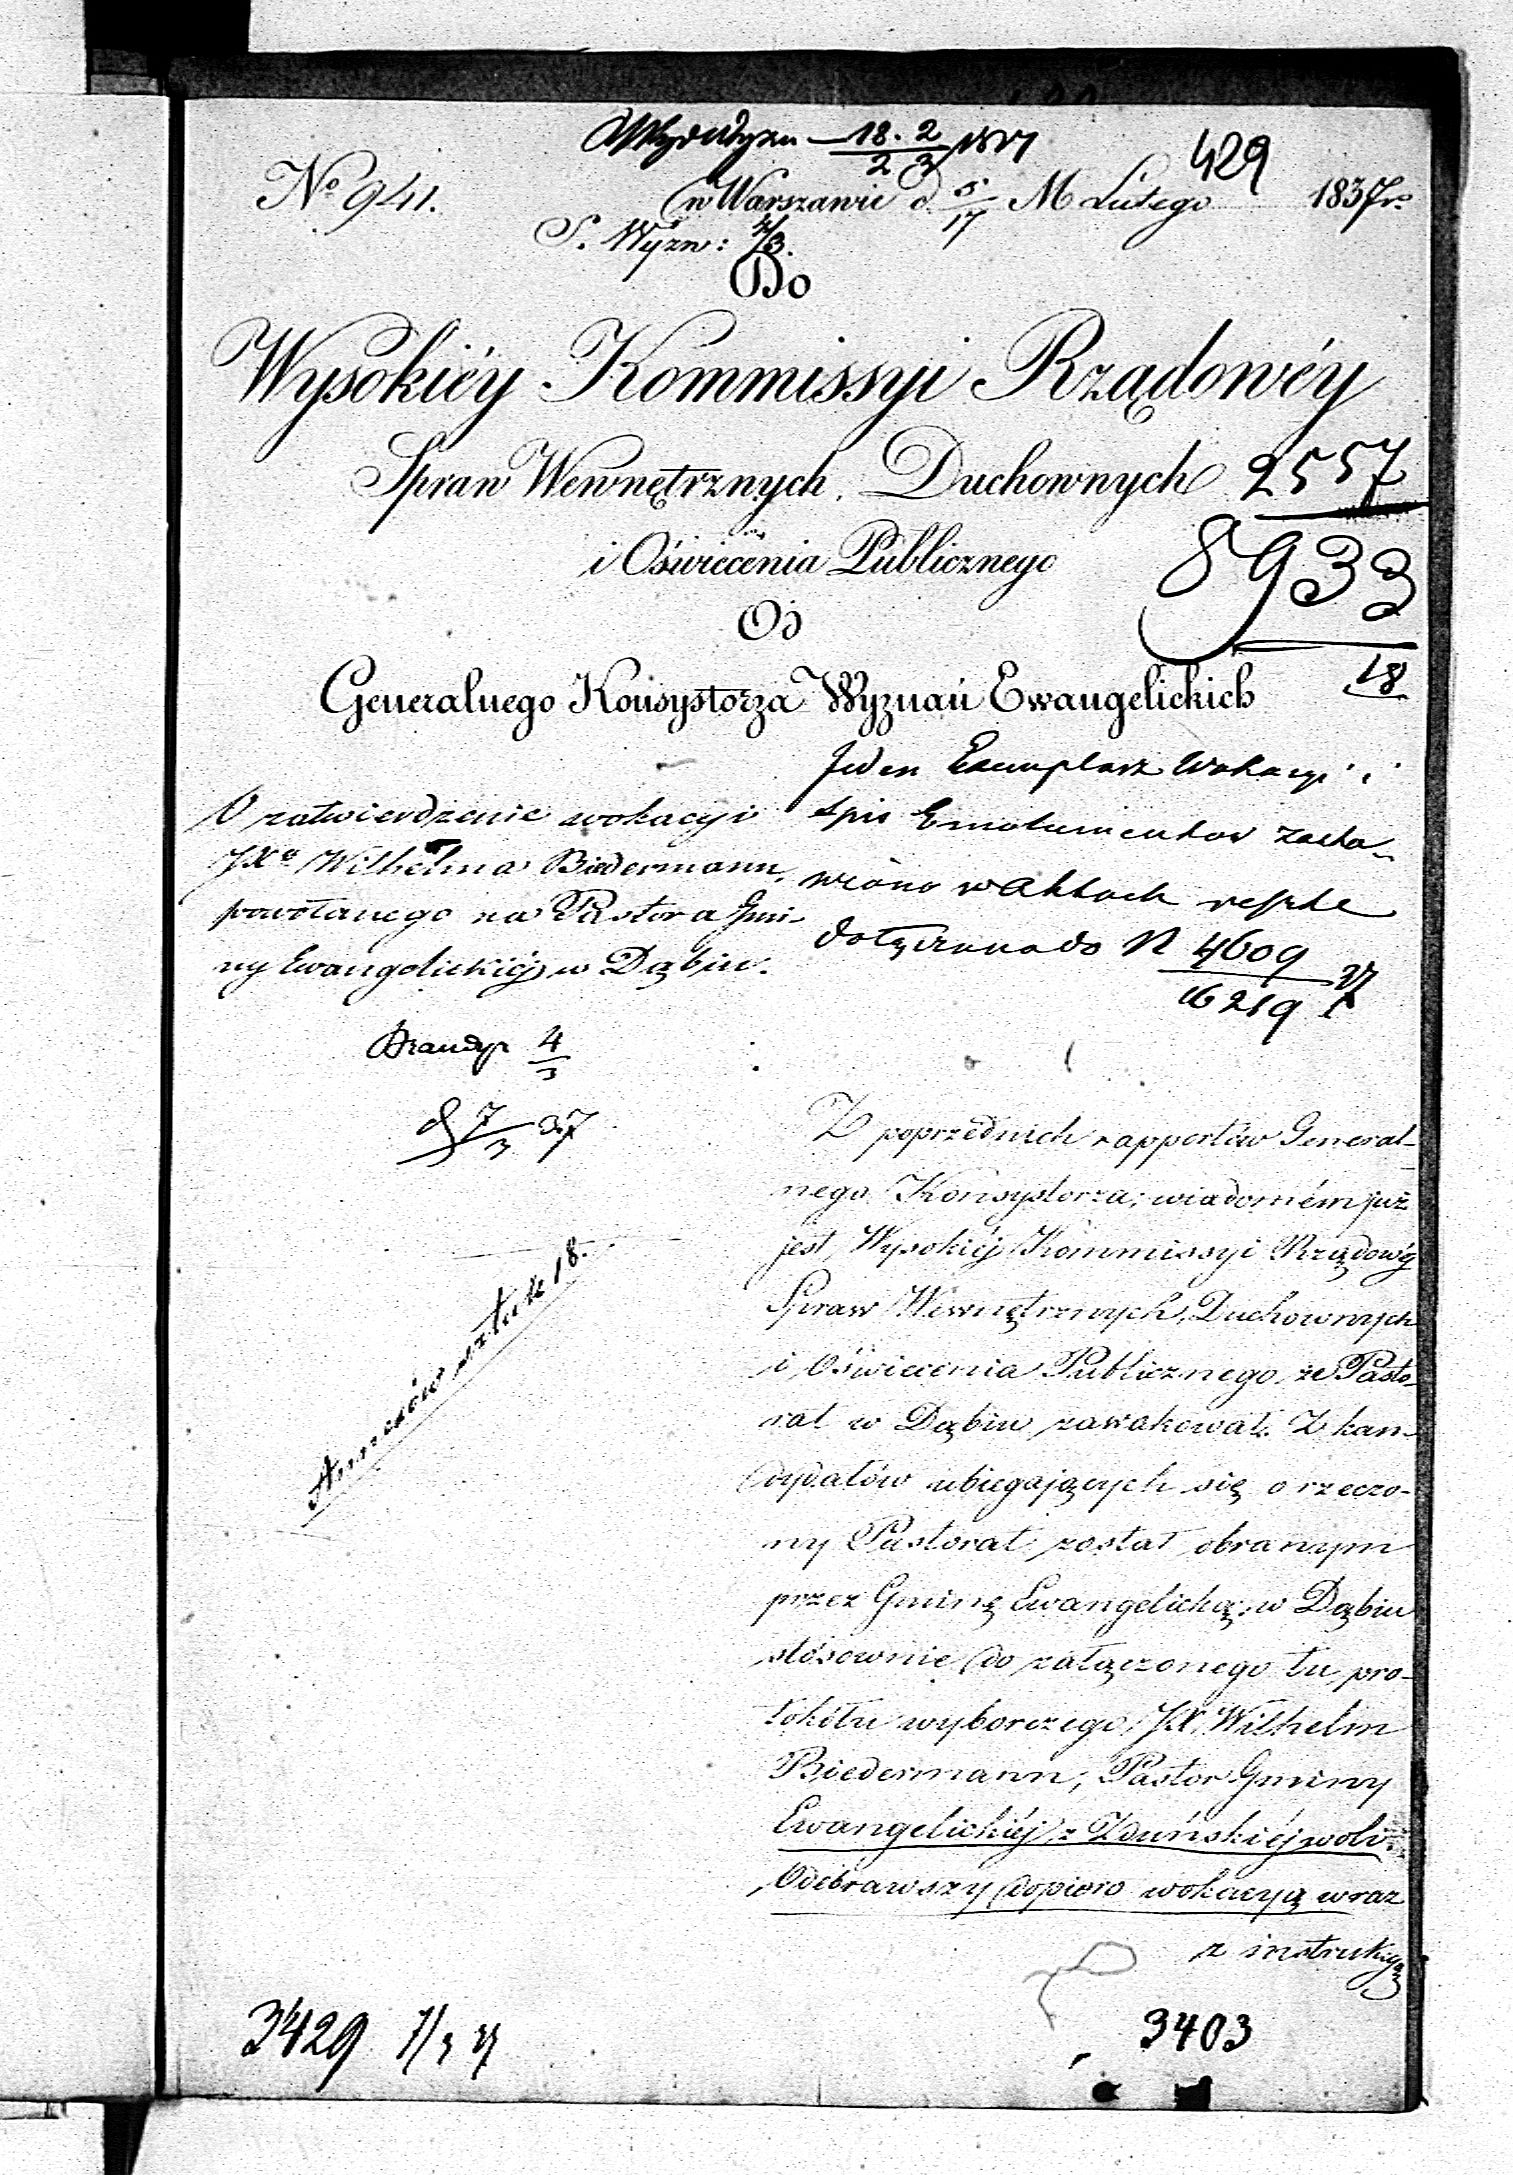 18. 2 / 2 3 1837
429
No 941.
w Warszawie d. 5/17 M Lutego 1837r.
S. Wyzn: 4/3.
Do
Wysokiéy Kommissyi Rządowéy
Spraw Wewnętrznych, Duchownych
2557
i Oświecenia Publicznego
8933
Od
18
Generalnego Konsystorza Wyznań Ewangelickich
O zatwierdzenie wokacyi
JXa Wilhelma Biedermann,
powołanego na Pastora Gmi-
ny Ewangelickiéj w Dąbiu.
Jeden Exemplarz Wokacyi i
spis Emolumentów zosta-
wiono w Aktach
dołączona do N 4609 / 16219 37
4/3
7/3 37
Annexów sztuk 18.
Z poprzednich rapportów General-
nego Konsystorza, wiadomém już
jest, Wysokiéj Kommissyi Rządowéj
Spraw Wewnętrznych, Duchownych
i Oświecenia Publicznego, że Pasto-
rat w Dąbiu zawakował. Z kan-
dydatów ubiegających się o rzeczo-
ny Pastorat został obranym
przez Gminę Ewangelicką w Dąbiu
stósownie do załączonego tu pro-
tokółu wyborczego, JX. Wilhelm
Biedermann, Pastor Gminy
Ewangelickiéj z Zduńskiéj woli.
Odebrawszy dopiero wokacyą wraz
z instrukcyą
3429 7/3 37
3403